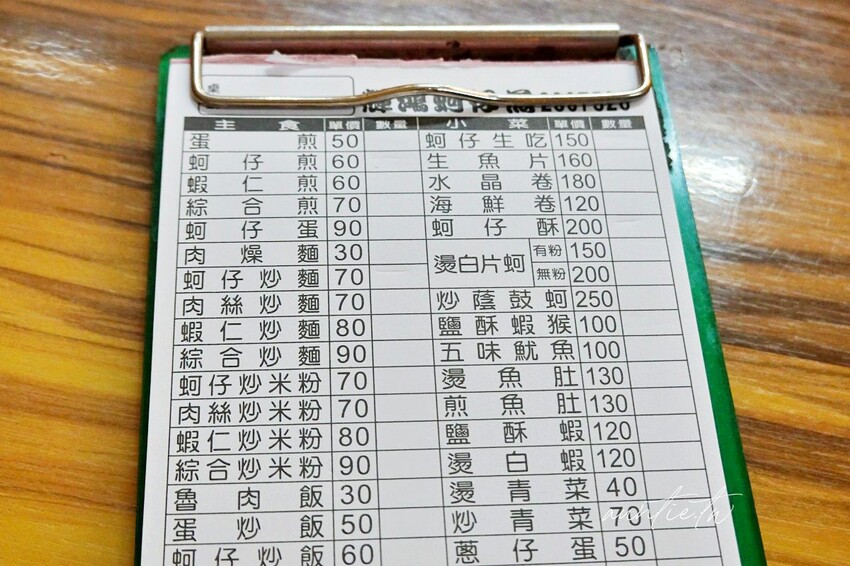 桌
主食 單價 數量 小菜 單價 數量
蛋煎 50 蚵仔生吃 150
蚵仔煎 60 生魚片 160
蝦仁煎 60 水晶卷 180
綜合煎 70 海鮮卷 120
蚵仔蛋 90 蚵仔酥 200
肉燥麵 30 燙白片蚵 有粉 150
蚵仔炒麵 70 無粉 200
肉絲炒麵 70 炒蔭鼓蚵 250
蝦仁炒麵 80 鹽酥蝦猴 100
綜合炒麵 90 五味魷魚 100
蚵仔炒米粉 70 燙魚肚 130
肉絲炒米粉 70 煎魚肚 130
蝦仁炒米粉 80 鹽酥蝦 120
綜合炒米粉 90 燙白蝦 120
魯肉飯 30 燙青菜 40
蛋炒飯 50 炒青菜
蚵仔炒飯 60 蔥仔蛋 50
auntie.tw